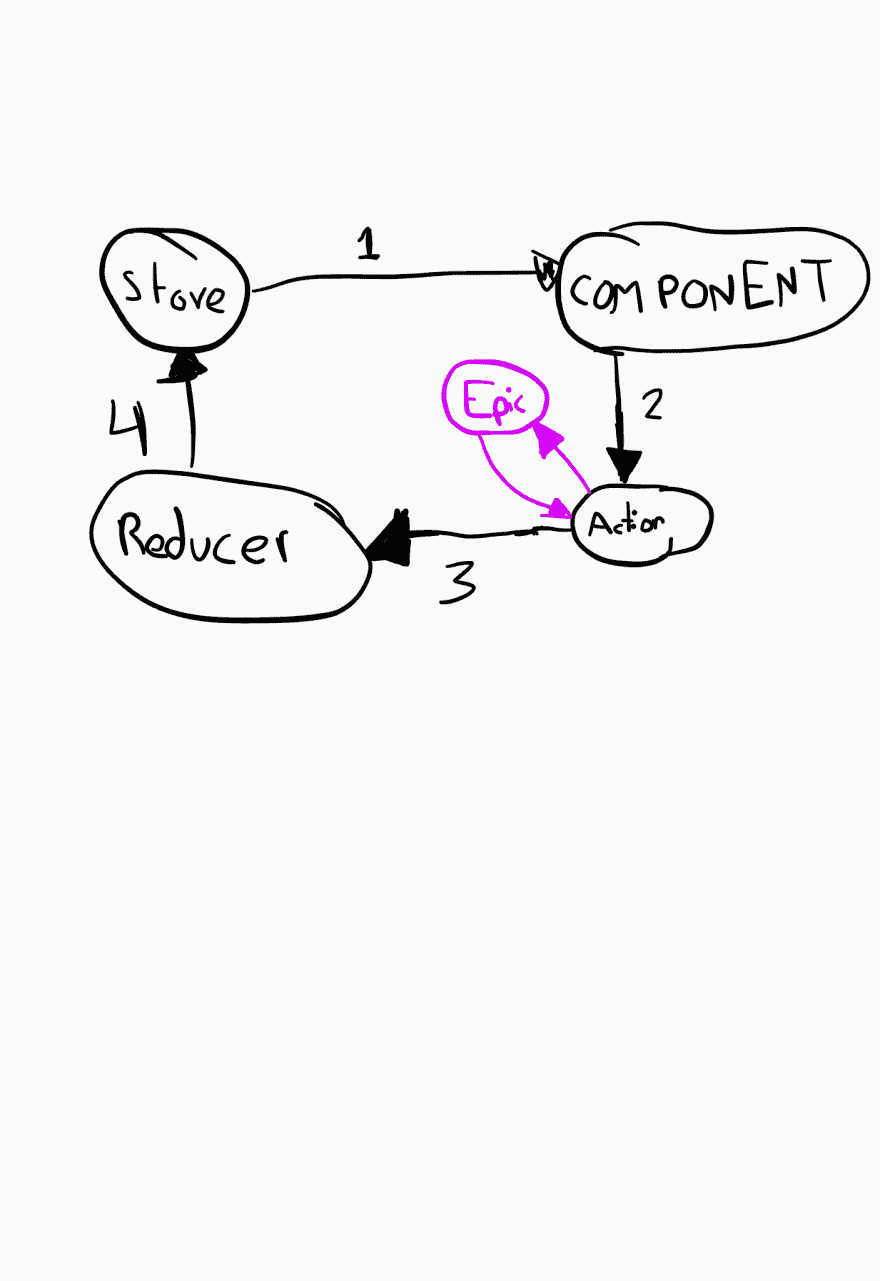 1
Store
COMPONENT
2
Epic
4
Action
Reducer
3